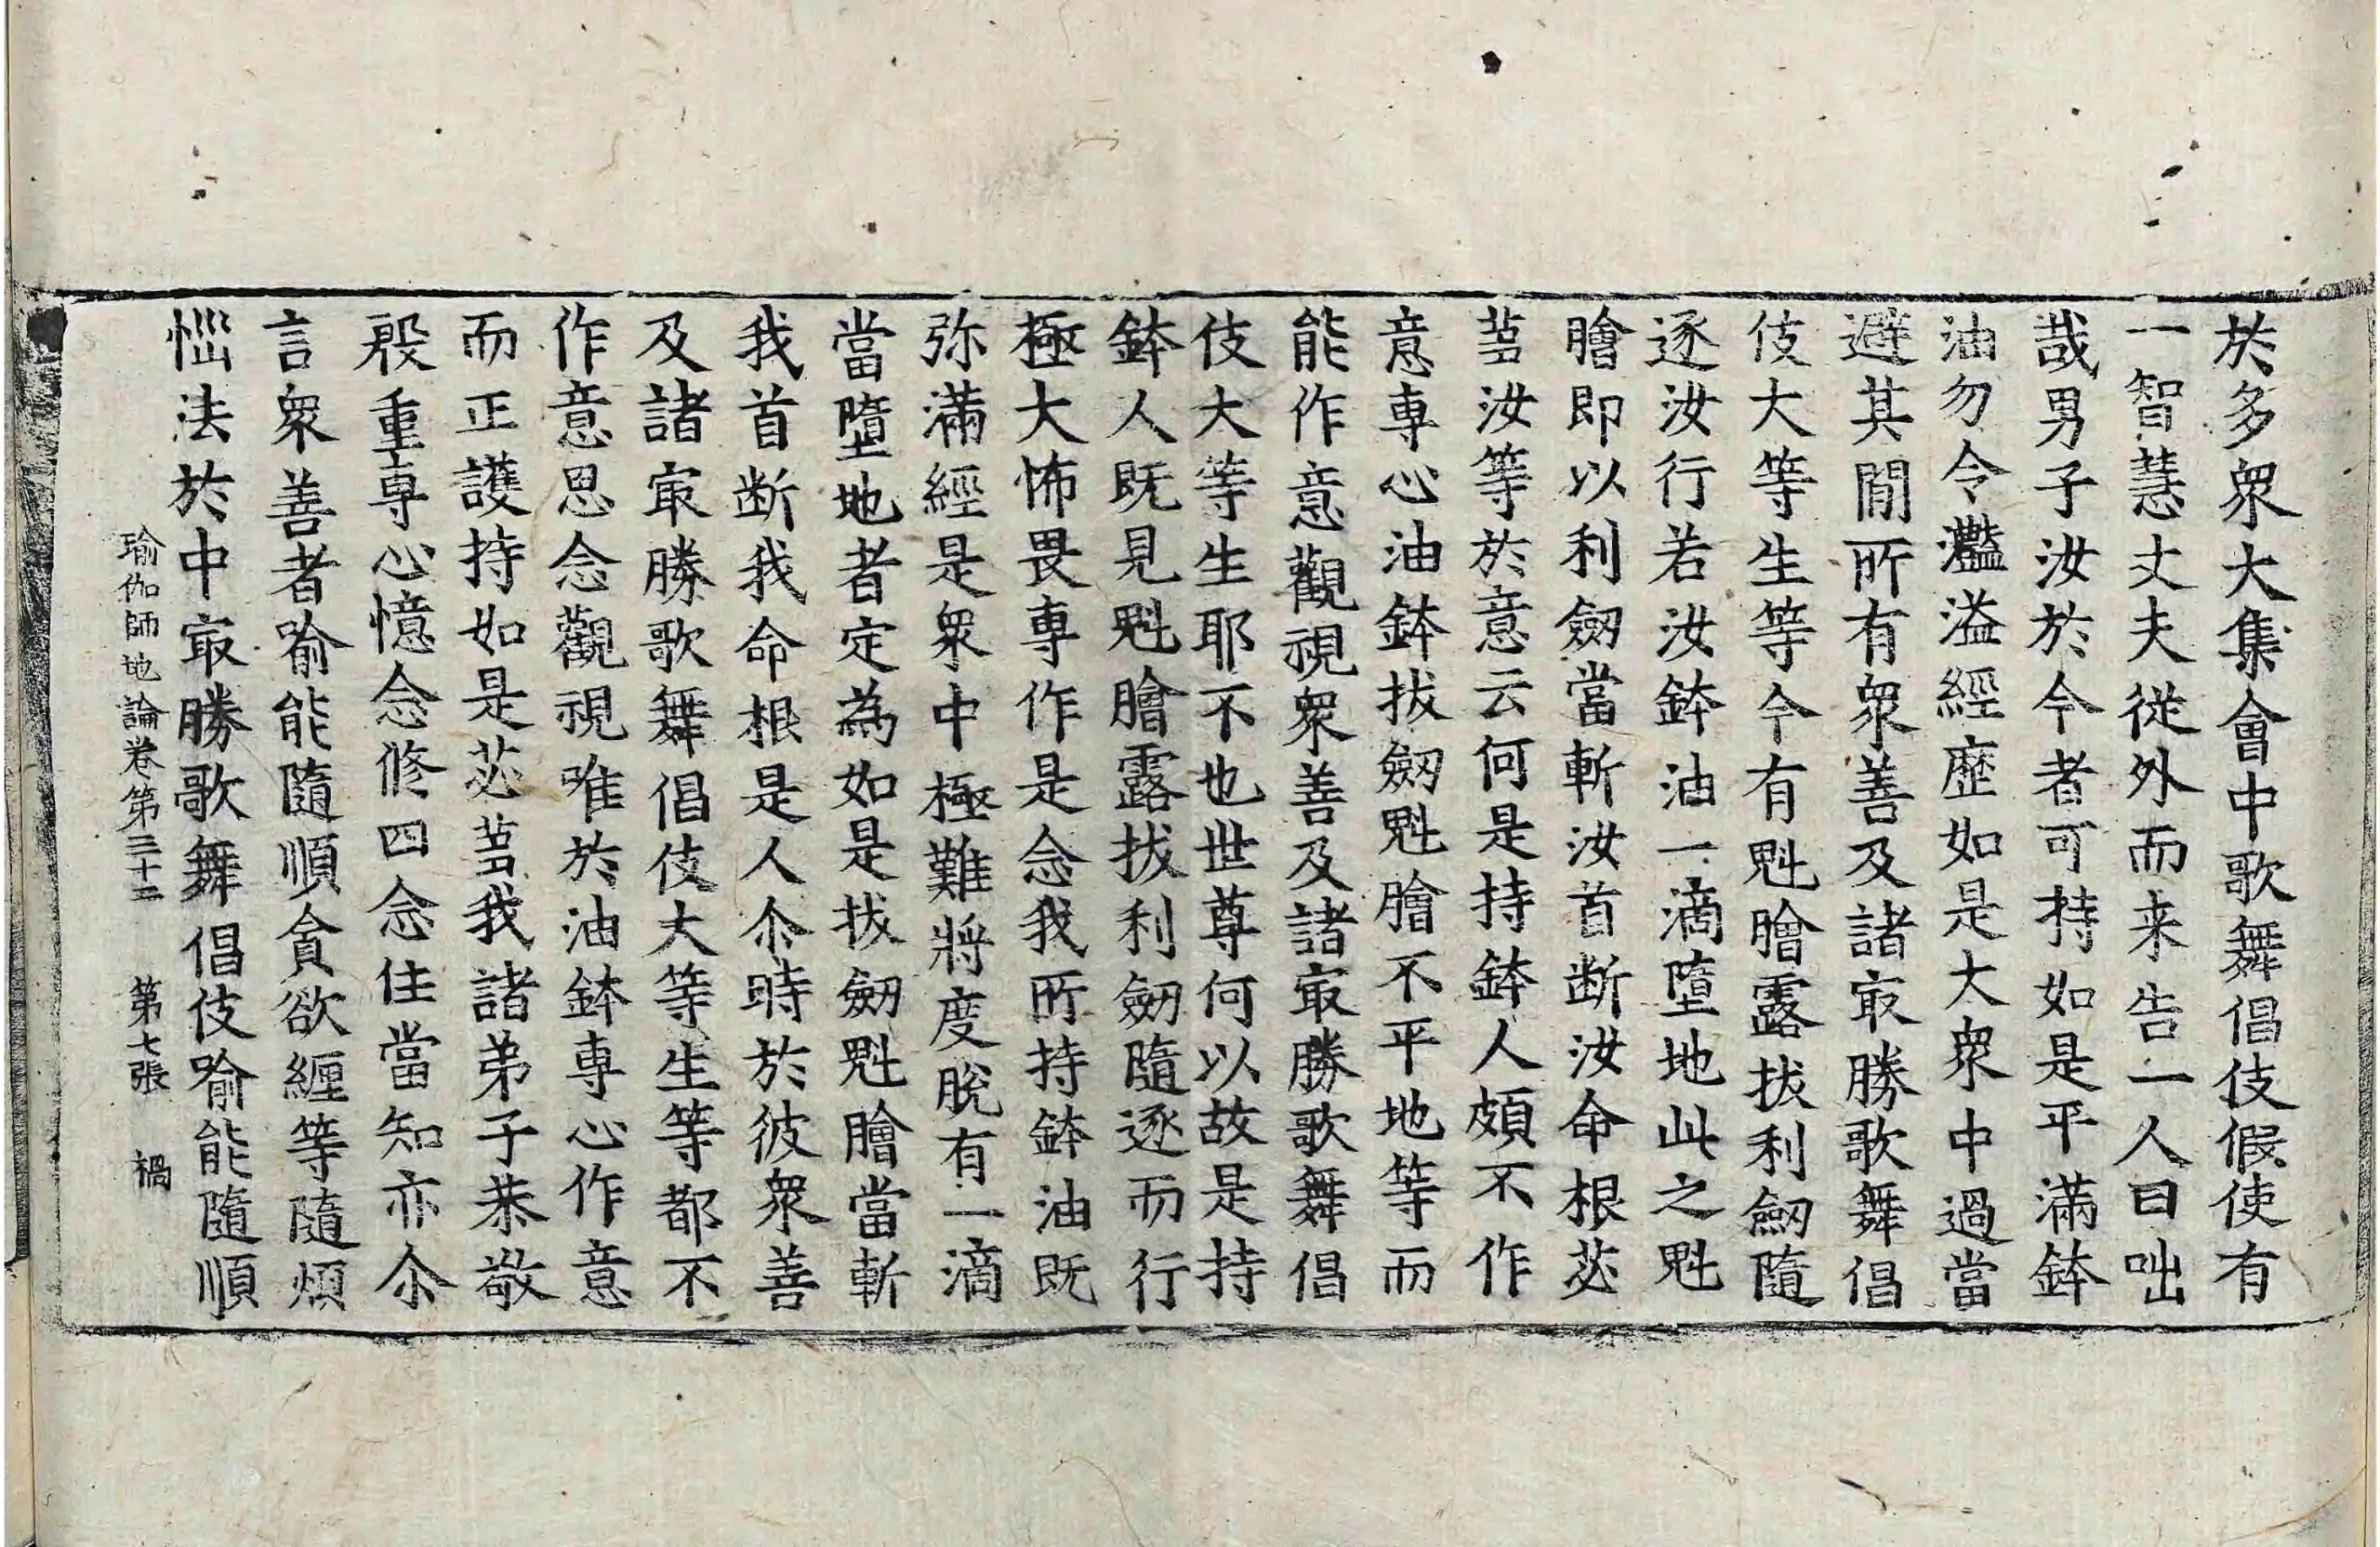 於多衆大集會中歌舞倡伎假使有
一智慧丈夫從外而来告一人曰咄
哉男子汝於今者可持如是平滿鉢
油勿令灩溢經歷如是大衆中過當
避其閒所有衆善及諸㝡勝歌舞倡
伎大等生等今有魁膾露拔利劒隨
逐汝行若汝鉢油一滴墮地此之魁
膾即以利劒當斬汝首断汝命根苾
蒭汝等於意云何是持鉢人頗不作
意專心油鉢拔劒魁膾不平地等而
能作意觀視衆善及諸㝡勝歌舞倡
伎大等生耶不也世尊何以故是持
鉢人既見魁膾露拔利劒隨逐而行
極大怖畏專作是念我所持鉢油既
弥滿經是衆中極難將度脫有一滴
當墮地者定為如是拔劒魁膾當斬
我首断我命根是人尒時於彼衆善
及諸㝡勝歌舞倡伎大等生等都不
作意思念觀視唯於油鉢專心作意
而正護持如是苾蒭我諸弟子恭敬
殷重專心憶念修四念住當知亦尒
言衆善者喻能隨順貪欲纏等隨煩
惱法於中㝡勝歌舞倡伎喻能隨順
瑜伽師地論卷第三十二 第七張 禍